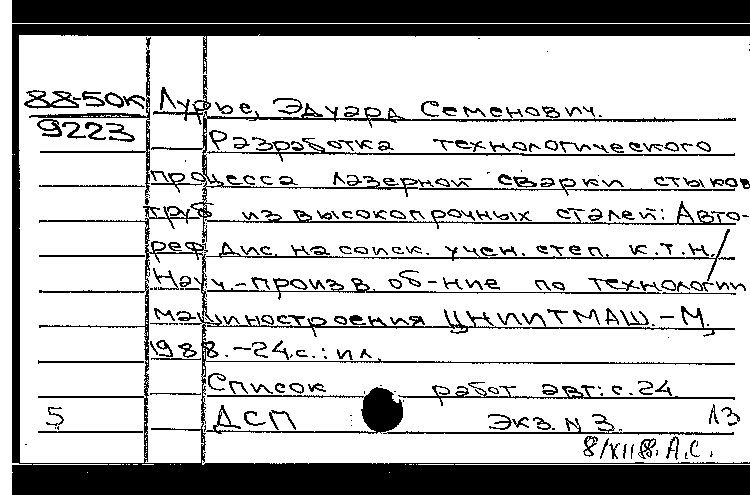 88-50к Лурье, Эдуард Семенович.
9223 Разработка технологического
процесса лазерной сварки стыков
труб из высокопрочных сталей: Авто-
реф. дис. на соиск. учен. степ. к.т.н./
Науч.-произв. об-ние по технологии
машиностроения ЦНИИТМАШ.-М.,
1988.-24с.: ил.
Список работ авт: с.24.
5 ДСП Экз. N 3. ЛЗ
А.С.